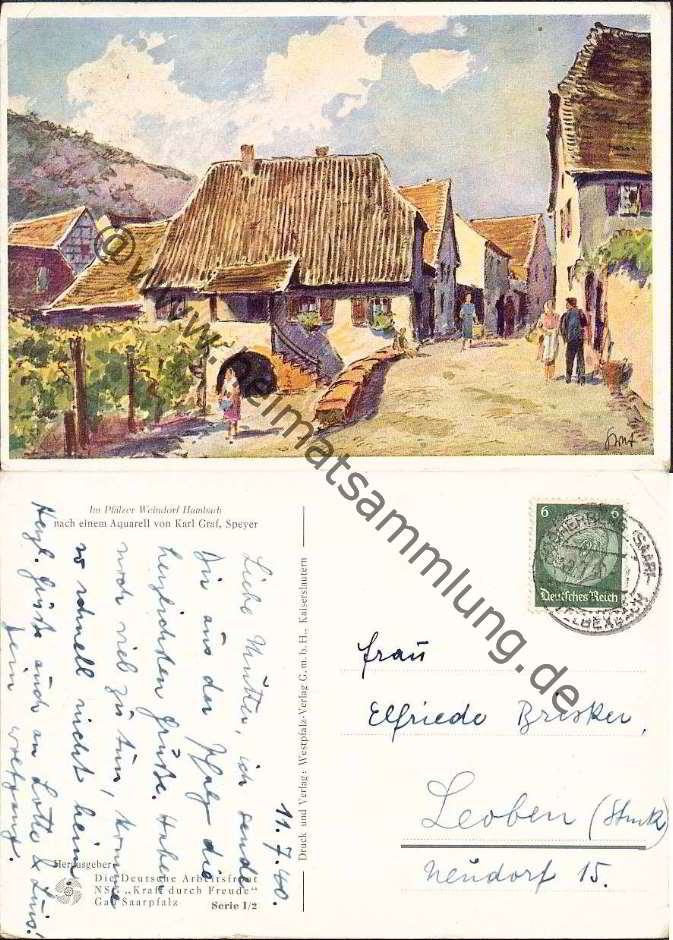 Im Pfälzer Weindorf Hambach
nach einem Aquarell von Karl Graf, Speyer
11.7.40.
Liebe Mutter, ich sende
Dir aus der Pfalz die
herzlichsten Grüße. Habe
noch viel zu tun, komme
so schnell nicht heim.
Herzl. Grüße auch an Lotte &
Dein Wolfgang.
Herausgeber:
Die Deutsche Arbeitsfront
NSG „Kraft durch Freude"
Gau Saarpfalz
Serie I/2
Druck und Verlag: Westpfalz-Verlag G. m. b. H., Kaiserslautern
6 6
Deutsches Reich
Frau
Elfriede Brisker,
Leoben (Stmk)
Neudorf 15.
@www.heimatsammlung.de